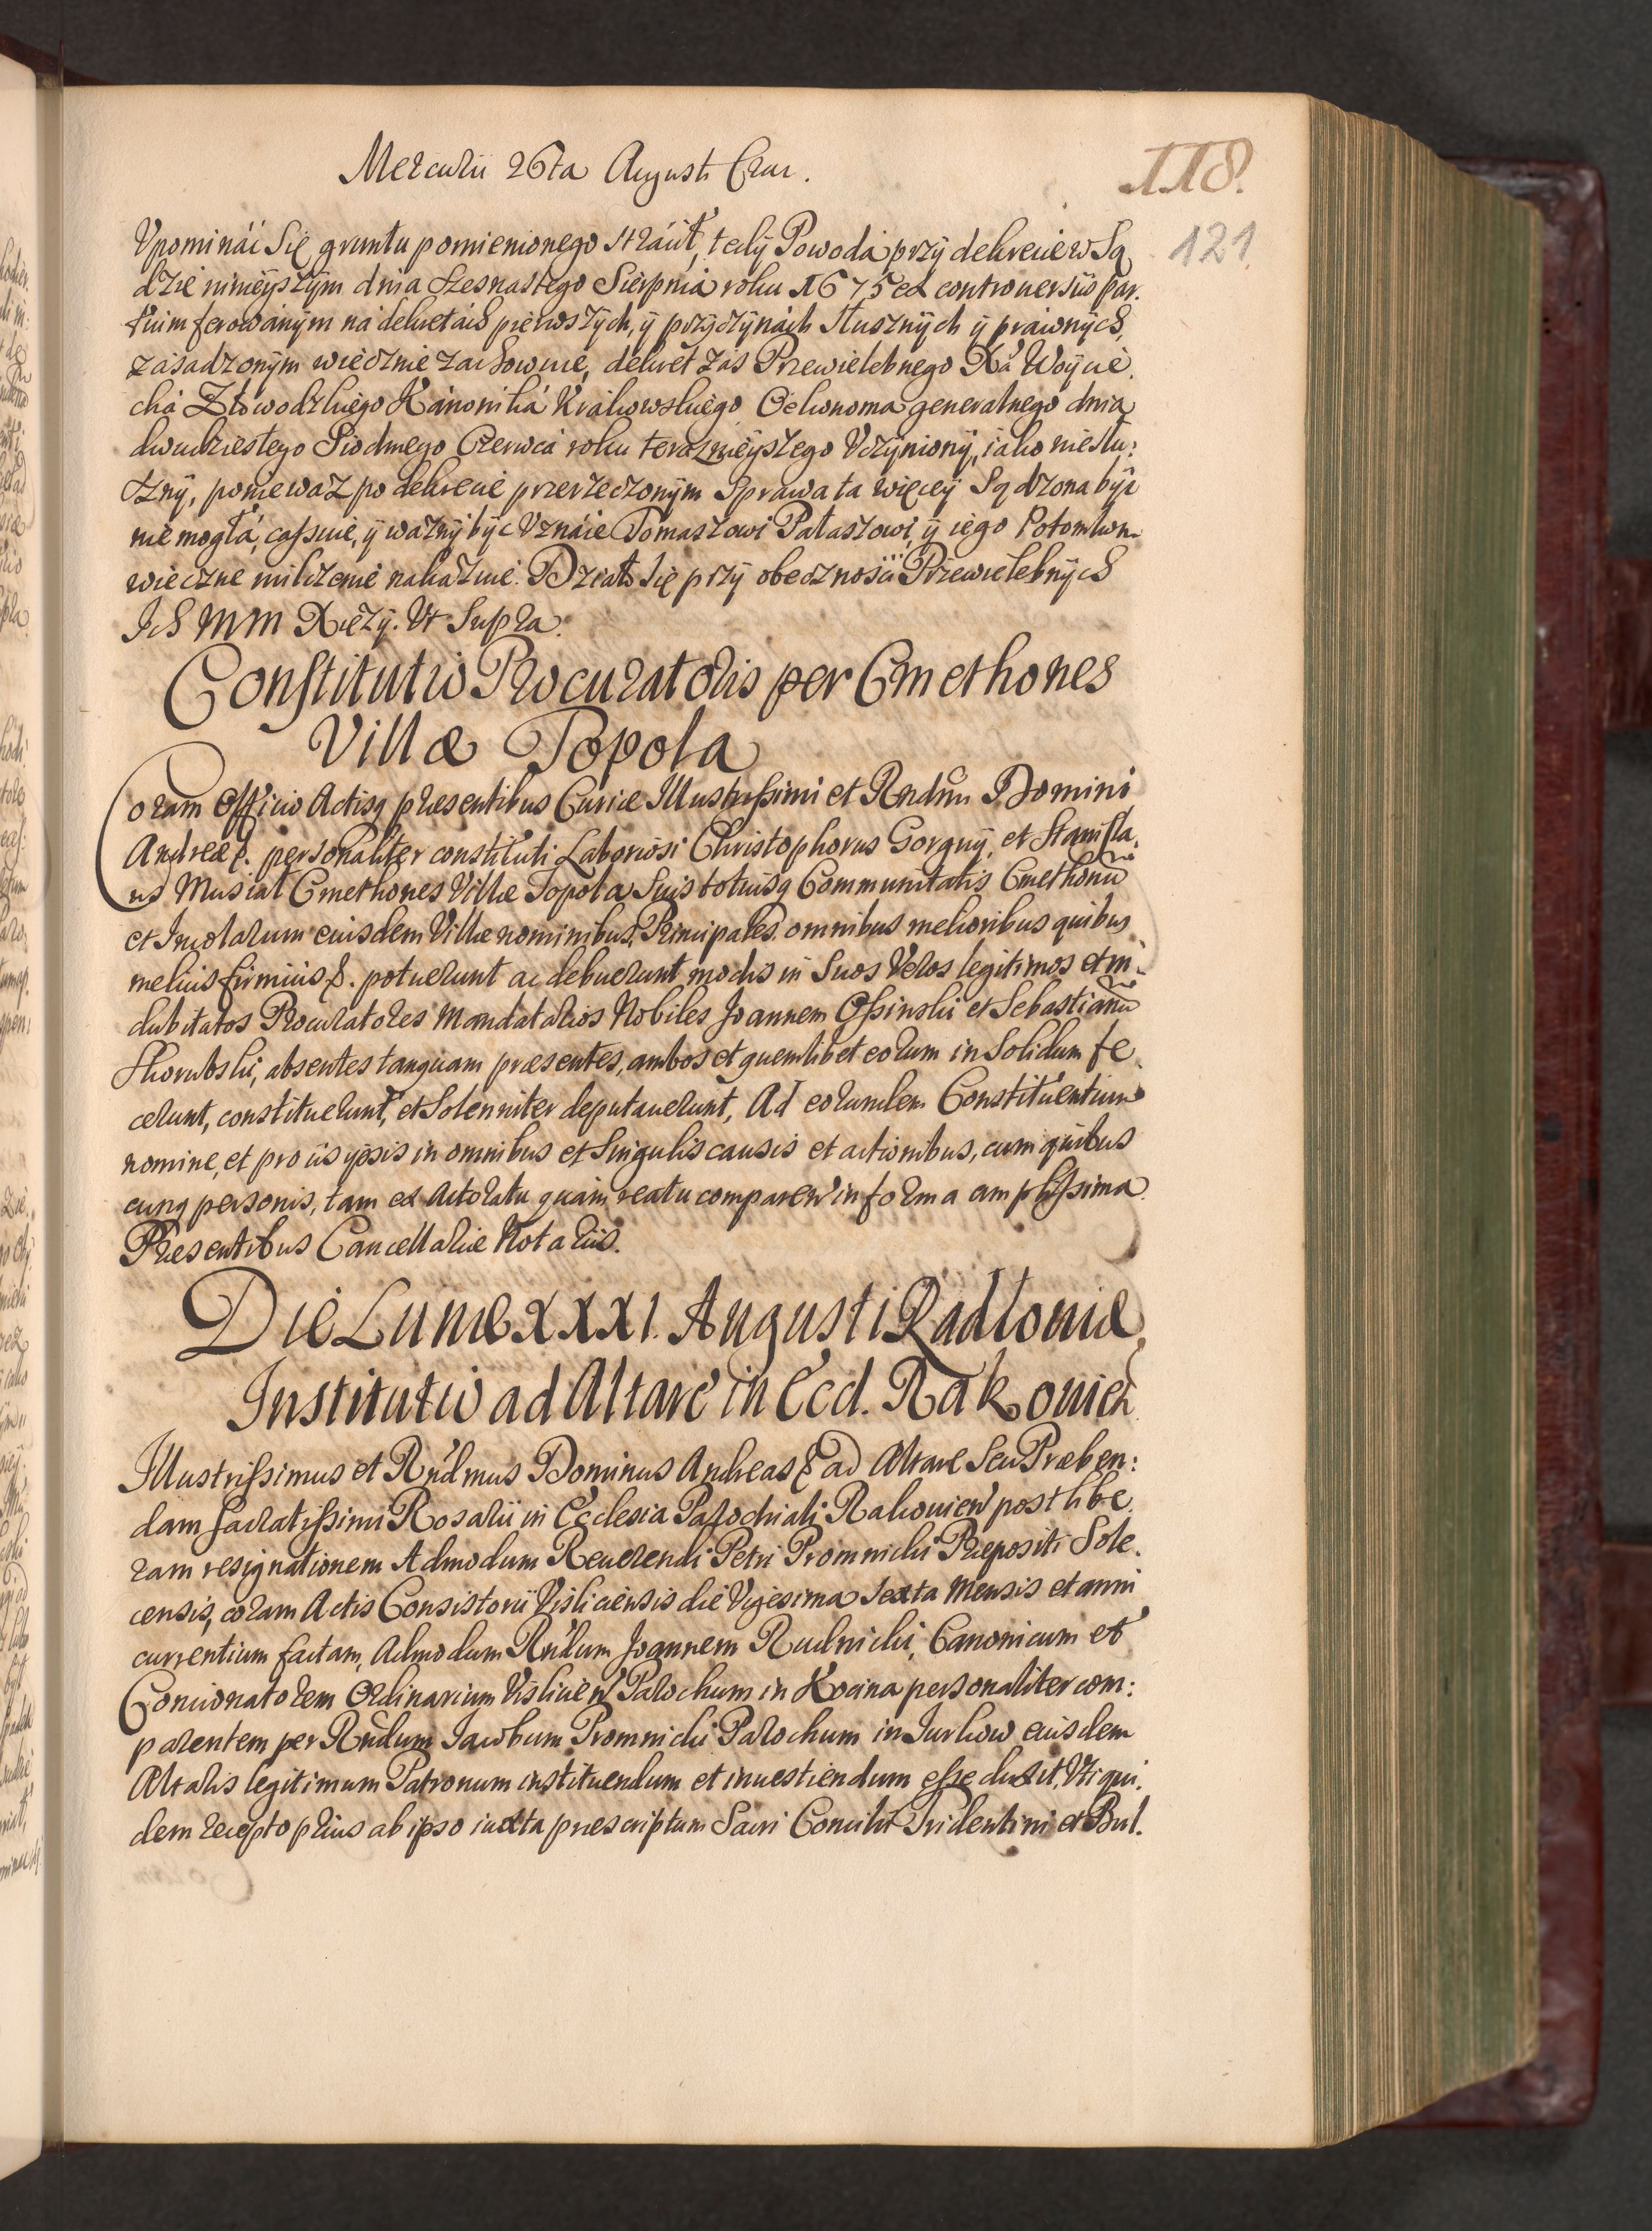 Mercurii 26ta Augusti Crac.
118.
121
Vpomináć Się gruntu pomienionego stráćił, tedy Powodá przÿ dekrecie w Są
dzie ninieÿszÿm dnia szesnastego Sierpnia roku 1675 ex controuersiis par
tium ferowánÿm ná dekretách pierwszÿch, ÿ przÿczÿnách słusznÿch ÿ prawnÿch
zásadzonÿm wiecznie zachowuie, dekret zás Przewielebnego Xá Woÿcie
chá Kánoniká Krákowskiego Oekonoma generalnego dnia
dwudziestego Siodmego Czerwca roku teraznieÿszego Vczÿnionÿ, iako niesłu:
sznÿ, poniewaz po dekrecie przerzeczonÿm Sprawa ta więceÿ Sądzona bÿć
nie mogłá, cassuie, ÿ waznÿ bÿc Vznáie Tomaszowi Pałaszowi, ÿ iego Potomkom
wieczne milczenie nakazuie. Działo się przÿ obecznosci Przewielebnÿch
Ich MM Xięzÿ. Vt Supra.
Constitutio Procuratoris per Cmethones
Villæ Topola
Coram Officio Actisq præsentibus Curiæ Illustrissimi et Rndmi Domini
Andreæ &. personaliter constituti Laboriosi Christophorus Gorgnÿ, et Stanisla
us Musiał Cmethones Villæ Topola Suis totiusq Communitatis Cmethonū
et Incolarum eiusdem Villæ nominibus, Principales omnibus melioribus quibus
melius firmius &. potuerunt ac debuerunt modis in Suos Veros legitimos et in
dubitatos Procuratores Mandatarios Nobiles Joannem Ossinski et Sebastianū
Skorubski, absentes tanquam præsentes, ambos et quemlibet eorum in Solidum fe
cerunt, constituerunt, et Solenniter deputauerunt, Ad eorumdem Constituentium
nomine, et pro iis ipsis in omnibus et Singulis causis et actionibus, cum quibus
cunq personis, tam ex Actoratu quam reatu comparen in forma amplissima
Præsentibus Cancellariæ Notariis.
Die Lunæ XXXI. Augusti Radłoviæ
Institutio ad Altare in Eccl. Rakovien
Illustrissimus et Rndmus Dominus Andreas & ad Altare Seu Præben:
dam Sacratissimi Rosarii in Ecclesia Parochiali Rakovien post libe
ram resignationem Admodum Reuerendi Petri Promnicki Præpositi Sole
censis, coram Actis Consistorii Visliciensis die Vigesima Sexta Mensis et anni
currentium factam, Admodum Rndum Joannem Rudnicki, Canonicum et
Concionatorem Ordinarium Vislicien Parochum in Kocina personaliter com:
parentem per Rndum Jacobum Promnicki Parochum in Jurkow eiusdem
Altaris legitimum Patronum instituendum et inuestiendum esse duxit, Vti qui
dem recepto prius ab ipso iuxta præscriptum Sacri Concilii Tridentini et Bul.